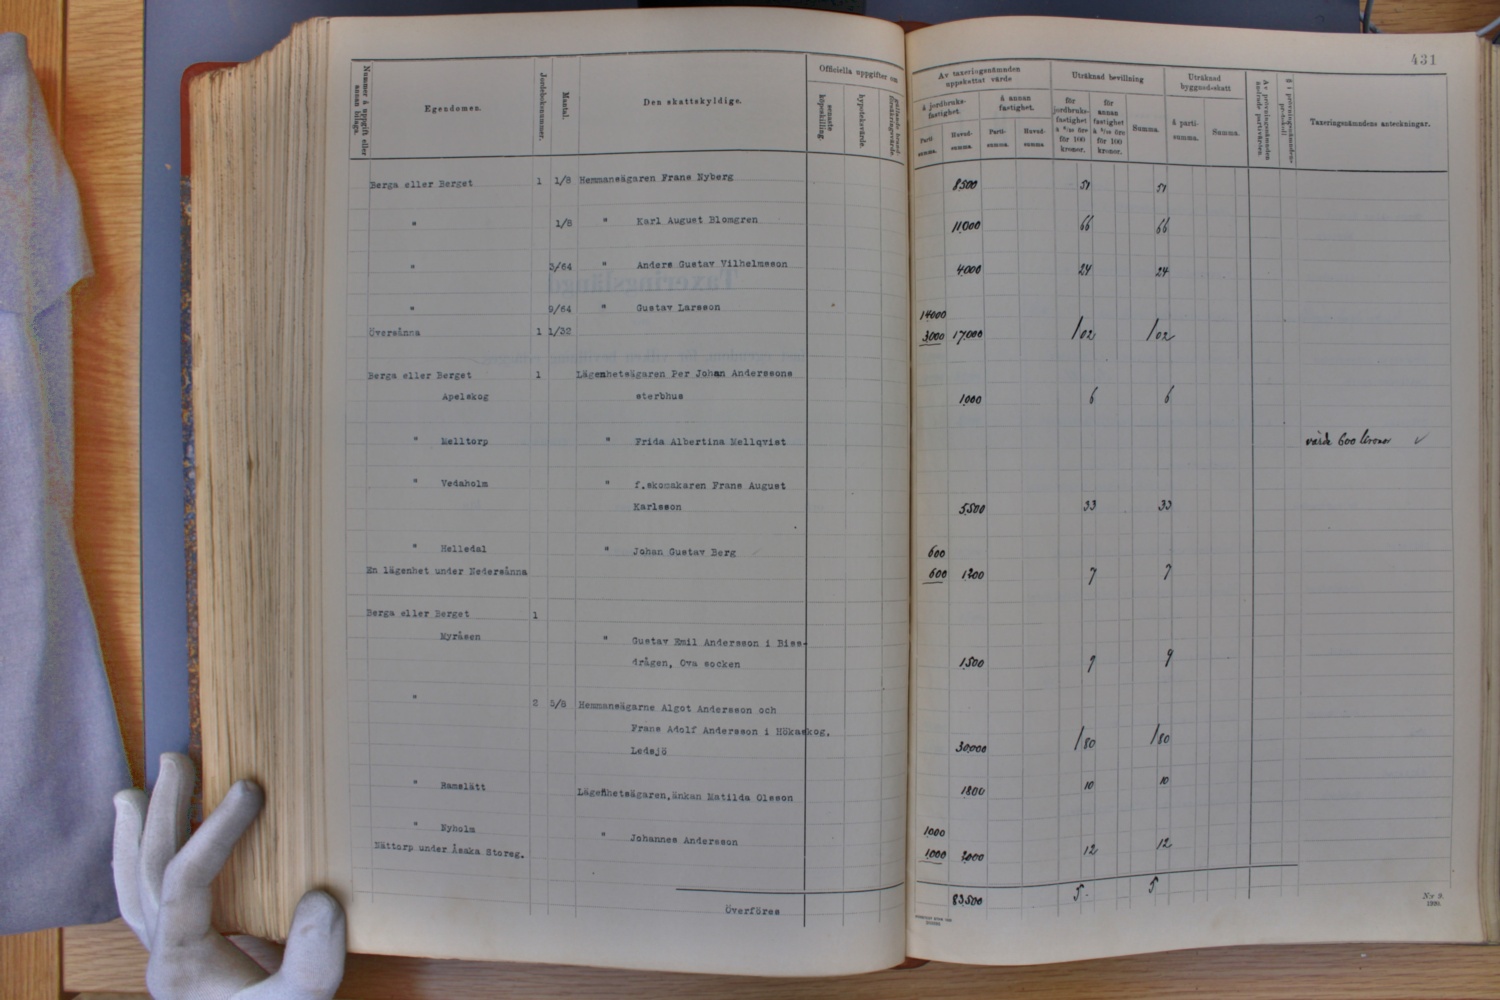 431
Nummer å uppgift eller annan bilaga.
Egendomen.
Jordeboksnummer.
Mantal.
Den skattskyldige.
Officiella uppgifter om
senaste köpeskilling.
hypoteksvärde.
gällande brandförsäkringsvärde.
Av taxeringsnämnden uppskattat värde
å jordbruksfastighet.
å annan fastighet.
Partisumma.
Huvudsumma.
Partisumma.
Huvudsumma
Uträknad bevillning
för jordbruksfastighet à 6/10 öre för 100 kronor.
för annan fastighet à 5/10 öre för 100 kronor.
Summa.
Uträknad byggnad-skatt
å partisumma.
Summa.
Av prövningsnämnden ändrade partivärden.
§ i prövningsnämndens protokoll
Taxeringsnämndens anteckningar.
Berga eller Berget 1 1/8 Hemmansägaren Frans Nyberg 8500 51 51
" 1/8 " Karl August Blomgren 11000 66 66
" 3/64 " Anders Gustav Vilhelmsson 4000 24 24
" 9/64 " Gustav Larsson 14000
Översånna 1 1/32 3000 17000 102 102
Berga eller Berget 1 Lägenhetsägaren Per Johan Anderssons
Apelskog sterbhus 1000 6 6
" Melltorp " Frida Albertina Mellqvist värde 600 kronor ✓
" Vedaholm " f.skomakaren Frans August
Karlsson 5500 33 33
" Helledal " Johan Gustav Berg 600
En lägenhet under Nedersånna 600 1200 7 7
Berga eller Berget 1
Myråsen " Gustav Emil Andersson i Biss-
drågen, Ova socken 1500 9 9
" 2 5/8 Hemmansägarne Algot Andersson och
Frans Adolf Andersson i Hökaskog,
Ledsjö 30000 180 180
" Ramslätt Lägenhetsägaren,änkan Matilda Olsson 1800 10 10
" Nyholm " Johannes Andersson 1000
Nättorp under Åsaka Storeg. 1000 2000 12 12
Överföres 83500 5 5
Nr 9.
1920.